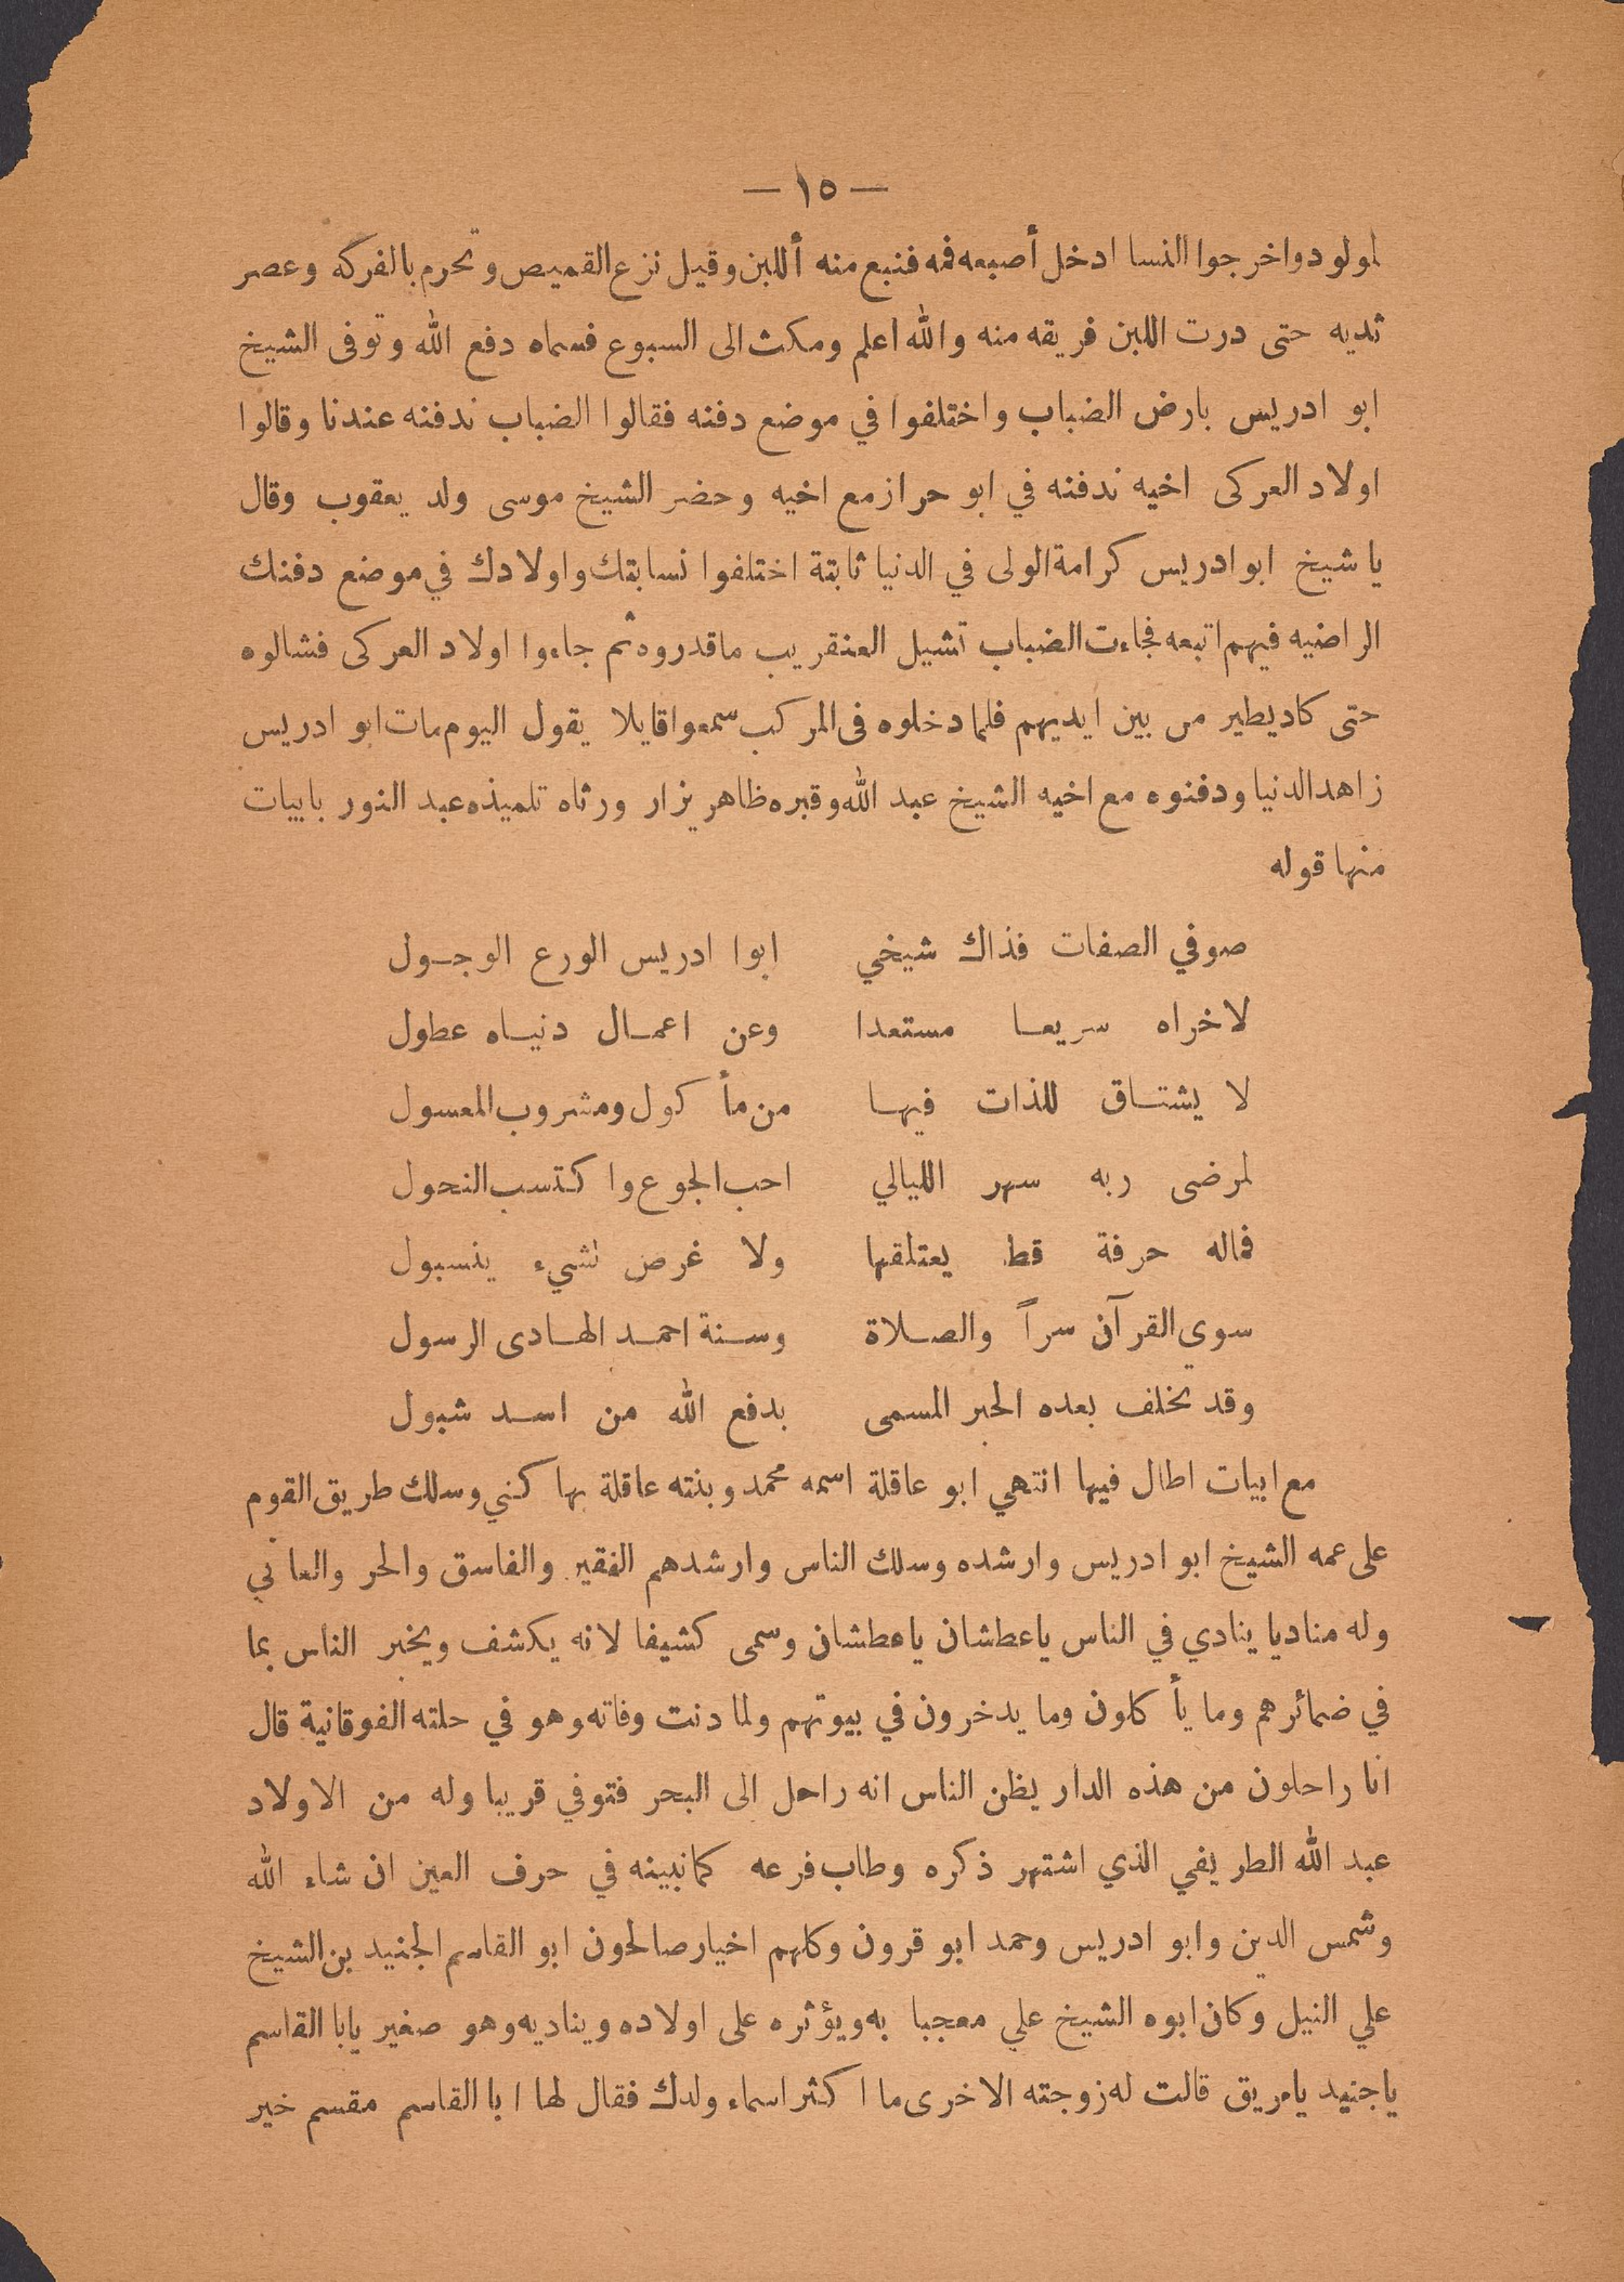 — ١٥ —
لمولود واخرجوا النسا ادخل أصبعه فمه فنبع منه أللبن وقيل نزع القميص وتحرم بالفركه وعصر
ثديه حتى درت اللبن فريقه منه والله اعلم ومكث الى السبوع فسماه دفع الله وتوفى الشيخ
ابو ادريس بارض الضباب واختلفوا في موضع دفنه فقالوا الضباب ندفنه عندنا وقالوا
اولاد العركى اخيه ندفنه في ابو حراز مع اخيه وحضر الشيخ موسى ولد يعقوب وقال
يا شيخ ابو ادريس كرامة الولى في الدنيا ثابتة اختلفوا نسابتك واولادك في موضع دفنك
الراضيه فيهم اتبعه فجاءت الضباب تشيل العنقريب ما قدروه ثم جاءوا اولاد العركى فشالوه
حتى كاد يطير من بين ايديهم فلما دخلوه فى المركب سمعوا قايلا يقول اليوم مات ابو ادريس
زاهد الدنيا ودفنوه مع اخيه الشيخ عبد الله وقبره ظاهر يزار ورثاه تلميذه عبد النور بابيات
منها قوله
صوفي الصفات فذاك شيخي ابوا ادريس الورع الوجول
لاخراه سريعا مستعدا وعن اعمال دنياه عطول
لا يشتاق للذات فيها من مأكول ومشروب المعسول
لمرضى ربه سهر الليالي احب الجوع واكتسب النحول
فماله حرفة قط يعتلقها ولا غرض لشيء ينسبول
سوى القرآن سراً والصلاة وسنة احمد الهادى الرسول
وقد تخلف بعده الحبر المسمى بدفع الله من اسد شبول
مع ابيات اطال فيها انتهي ابو عاقلة اسمه محمد وبنته عاقلة بها كني وسلك طريق القوم
على عمه الشيخ ابو ادريس وارشده وسلك الناس وارشدهم الفقير والفاسق والحر والعاني
وله مناديا ينادي في الناس ياعطشان ياعطشان وسمى كشيفا لانه يكشف ويخبر الناس بما
في ضمائرهم وما يأكلون وما يدخرون في بيوتهم ولما دنت وفاته وهو في حلته الفوقانية قال
انا راحلون من هذه الدار يظن الناس انه راحل الى البحر فتوفي قريبا وله من الاولاد
عبد الله الطريفي الذي اشتهر ذكره وطاب فرعه كما نبينه في حرف العين ان شاء الله
وشمس الدين وابو ادريس وحمد ابو قرون وكلهم اخيار صالحون ابو القاسم الجنيد بن الشيخ
علي النيل وكان ابوه الشيخ علي معجبا به ويؤثره على اولاده ويناديه وهو صغير يابا القاسم
ياجنيد يامريق قالت له زوجته الاخرى ما اكثر اسماء ولدك فقال لها ابا القاسم مقسم خير